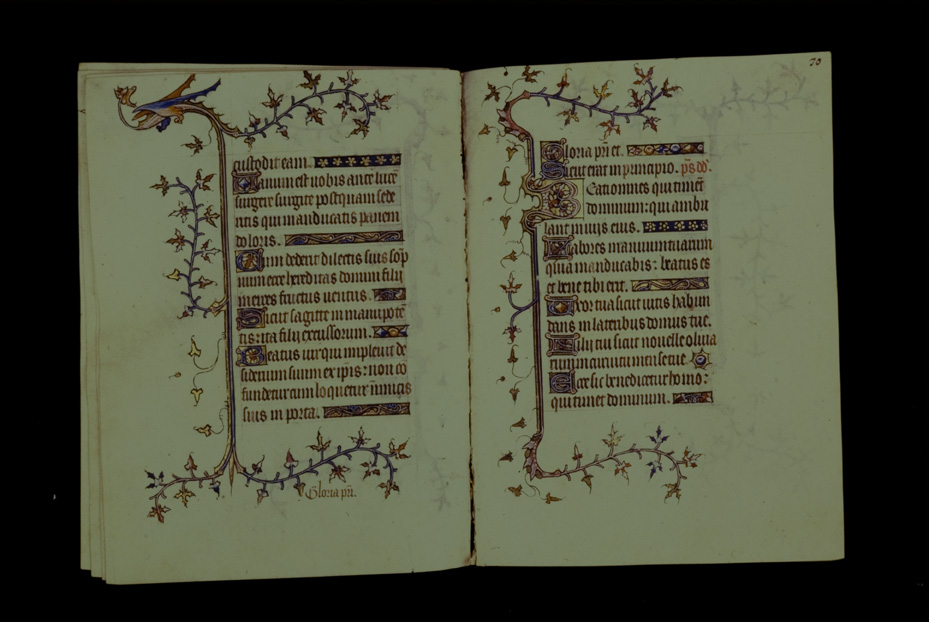 custodit eam.
Uanum est uobis ante lucē
surgere surgite postquam sede
ritis qui manducatis panem
doloris.
Cum dederit dilectis suis sōp
num ecce hereditas domini filij
merces fructus uentris.
Sicut sagitte in manu potē
tis: ita filij excussorum.
Beatus uir qui impleuit de
siderium suum ex ipis: non cō
fundetur cum loquetur inimicis
suis in porta.
Gloria pri.
70
Gloria pri et.
Sicut erat in principio. ps dd.
Beati omnes qui timēt
dominum: qui ambu
lant in uijs eius.
Labores manuum tuarum
quia manducabis: beatus es
et bene tibi erit.
Uxor tua sicut uitis habun
dans in lateribus domus tue.
Filij tui sicut nouelle oliua
rum in circuitu mense tue.
Ecce sic benedicetur homo:
qui timet dominum.